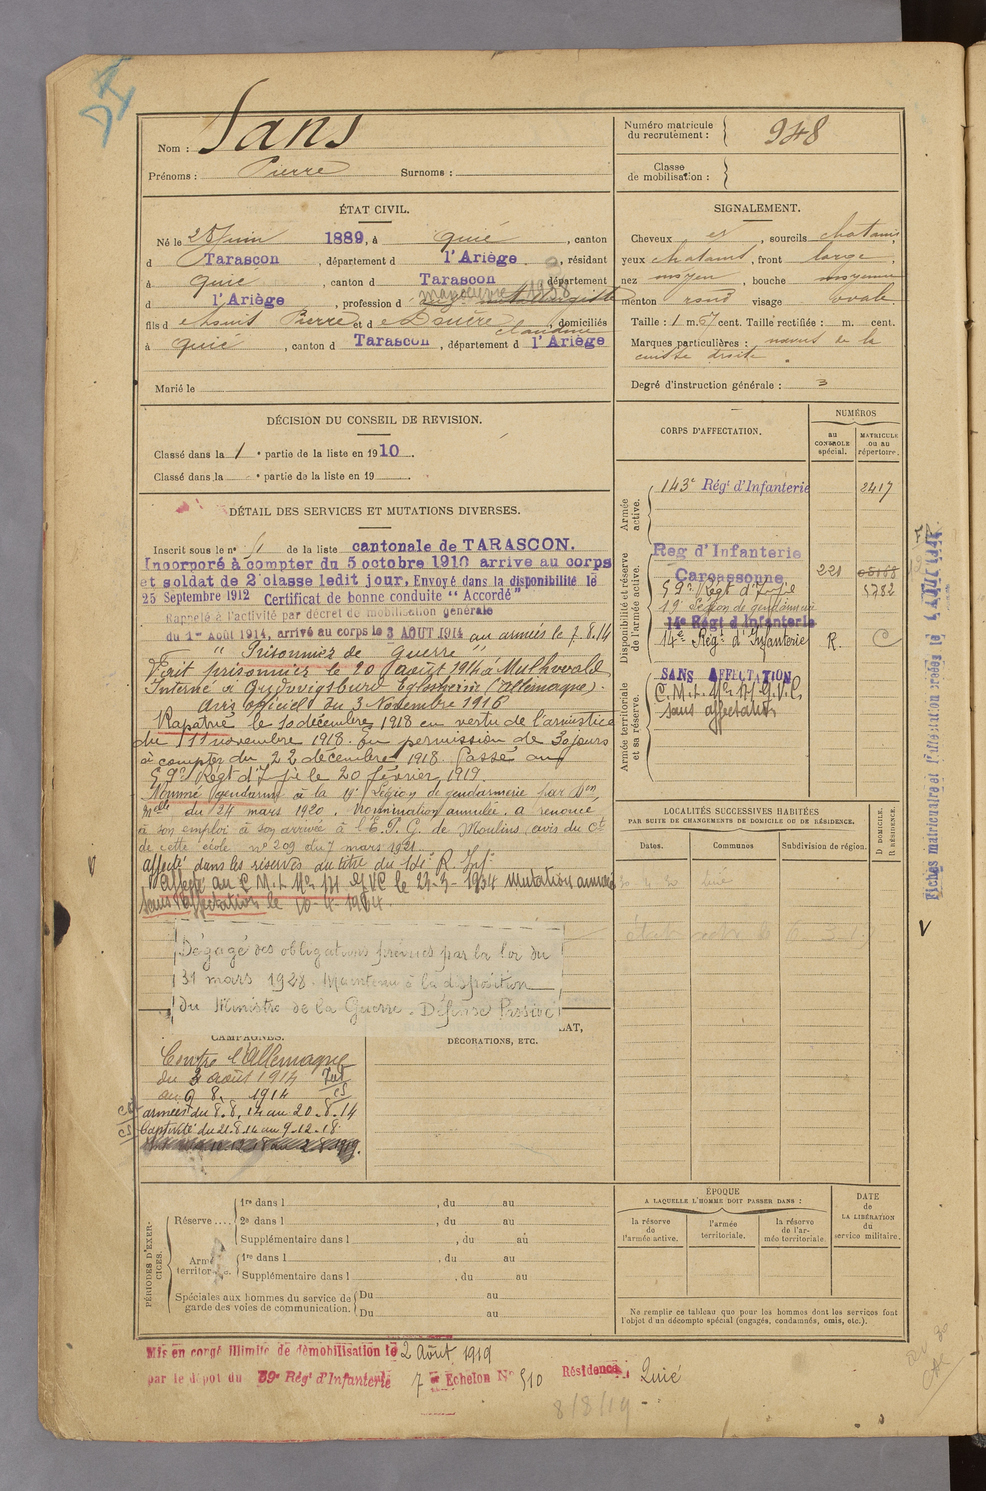 Nom : Sans
Prénoms : Pierre Surnoms :
Numéro matricule du recrutement : 948
Classe de mobilisation :
ÉTAT CIVIL.
Né le 28 Juin 1889, à Quié, canton
d Tarascon, département d l'Ariège, résidant
à Quié, canton d Tarascon département
d l'Ariège, profession d manoeuvre 1938
fils d Pierre et d Claudine, domiciliés
à Quié, canton d Tarascon, département d l'Ariège
Marié le
SIGNALEMENT.
Cheveux et, sourcils chatains,
yeux chatains, front large,
nez moyen, bouche moyenne
menton rond visage ovale.
Taille : 1 m. 67 cent. Taille rectifiée : m. cent.
Marques particulières : naevus de la
cuisse droite.
Degré d'instruction générale : 3
DÉCISION DU CONSEIL DE REVISION.
Classé dans la 1 e partie de la liste en 1910.
Classé dans la e partie de la liste en 19
DÉTAIL DES SERVICES ET MUTATIONS DIVERSES.
Inscrit sous le n° 51 de la liste cantonale de TARASCON.
Incorporé à compter du 5 octobre 1910 arrivé au corps
et soldat de 2e classe ledit jour. Envoyé dans la disponibilité le
25 Septembre 1912 Certificat de bonne conduite “ Accordé”
Rappelé à l'activité par décret de mobilisation générale
du 1er Août 1914, arrivé au corps le 3 AOUT 1914 aux armées le 7.8.14
“ Prisonnier de Guerre ”
Fait prisonnier le 20 août 1914 à
Interné à (Allemagne).
Avis officiel du 3 Novembre 1916
Rapatrié le 10 décembre 1918 en vertu de l'armistice
du 11 novembre 1918. En permission de 30 jours
à compter du 22 décembre 1918. Passé au
59e Régt d'Iie le 20 février 1919.
Nommé gendarme à la 19e Légion de gendarmerie par Don
Mlle du 24 mars 1920. Nomination annulée. a renoncé
à son emploi à son arrivée à l'E.P.G. de Moulins, avis du Ct
de cette école n° 209 du 7 mars 1921
affecté dans les réserves au titre du 14e R. Inf.
Affecté au C.M.I. No 17 G.V.C le 23-3-1934 Mutation annulée
sans affectation le 10-4-1934.
Dégagé des obligations prévues par la loi du
31 mars 1928. Maintenu à la disposition
du Ministre de la Guerre - Défense Passive
AT,
CAMPAGNES.
DÉCORATIONS, ETC.
Contre l'Allemagne
du 3 août 1914
au 8. 1914
armées du 8.8.14 au 20.8.14
Captivité du 21.8.14 au 9.12.18.
CORPS D'AFFECTATION.
NUMÉROS
au CONTROLE spécial.
MATRICULE ou au répertoire.
Armée active.
143e Régt d'Infanterie 2417
Disponibilité et réserve de l'armée active.
Reg d'Infanterie
Carcassonne 221
59e Régt d'Iie 5782
19e Légion de gendarmerie
14e Régt d'Infanterie
14e Régt d'Infanterie R. C
Armée territoriale et sa réserve.
SANS AFFECTATION
C.M.I. No 17 G.V.C.
sans affectation
LOCALITÉS SUCCESSIVES HABITÉES
PAR SUITE DE CHANGEMENTS DE DOMICILE OU DE RÉSIDENCE.
Dates. Communes Subdivision de région.
D DOMICILE.
R RÉSIDENCE.
PÉRIODES D'EXERCICES.
Réserve....
1re dans l , du au
2e dans l , du au
Supplémentaire dans l , du au
Armée territoriale.
1re dans l , du au
Supplémentaire dans l , du au
Spéciales aux hommes du service de garde des voies de communication.
Du au
Du au
ÉPOQUE
A LAQUELLE L'HOMME DOIT PASSER DANS :
la réserve de l'armée active.
l'armée territoriale.
la réserve de l'armée territoriale.
DATE de LA LIBÉRATION du service militaire.
Ne remplir ce tableau que pour les hommes dont les services font
l'objet d'un décompte spécial (engagés, condamnés, omis, etc.).
Mis en congé illimité de démobilisation le 2 Août 1919
par le dépôt du 59e Rég' d'Infanterie 7e Echelon N° 510 Résidence : Quié
8/8/19